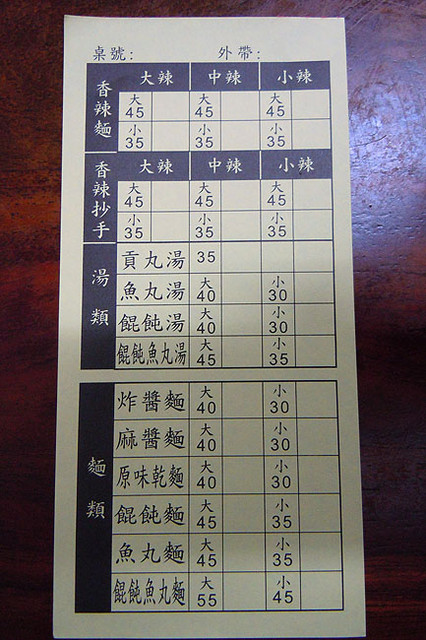 桌號： 外帶：
香辣麵 大辣 中辣 小辣
大45 大45 大45
小35 小35 小35
香辣抄手 大辣 中辣 小辣
大45 大45 大45
小35 小35 小35
湯類
貢丸湯 35
魚丸湯 大40 小30
餛飩湯 大40 小30
餛飩魚丸湯 大45 小35
麵類
炸醬麵 大40 小30
麻醬麵 大40 小30
原味乾麵 大40 小30
餛飩麵 大45 小35
魚丸麵 大45 小35
餛飩魚丸麵 大55 小45